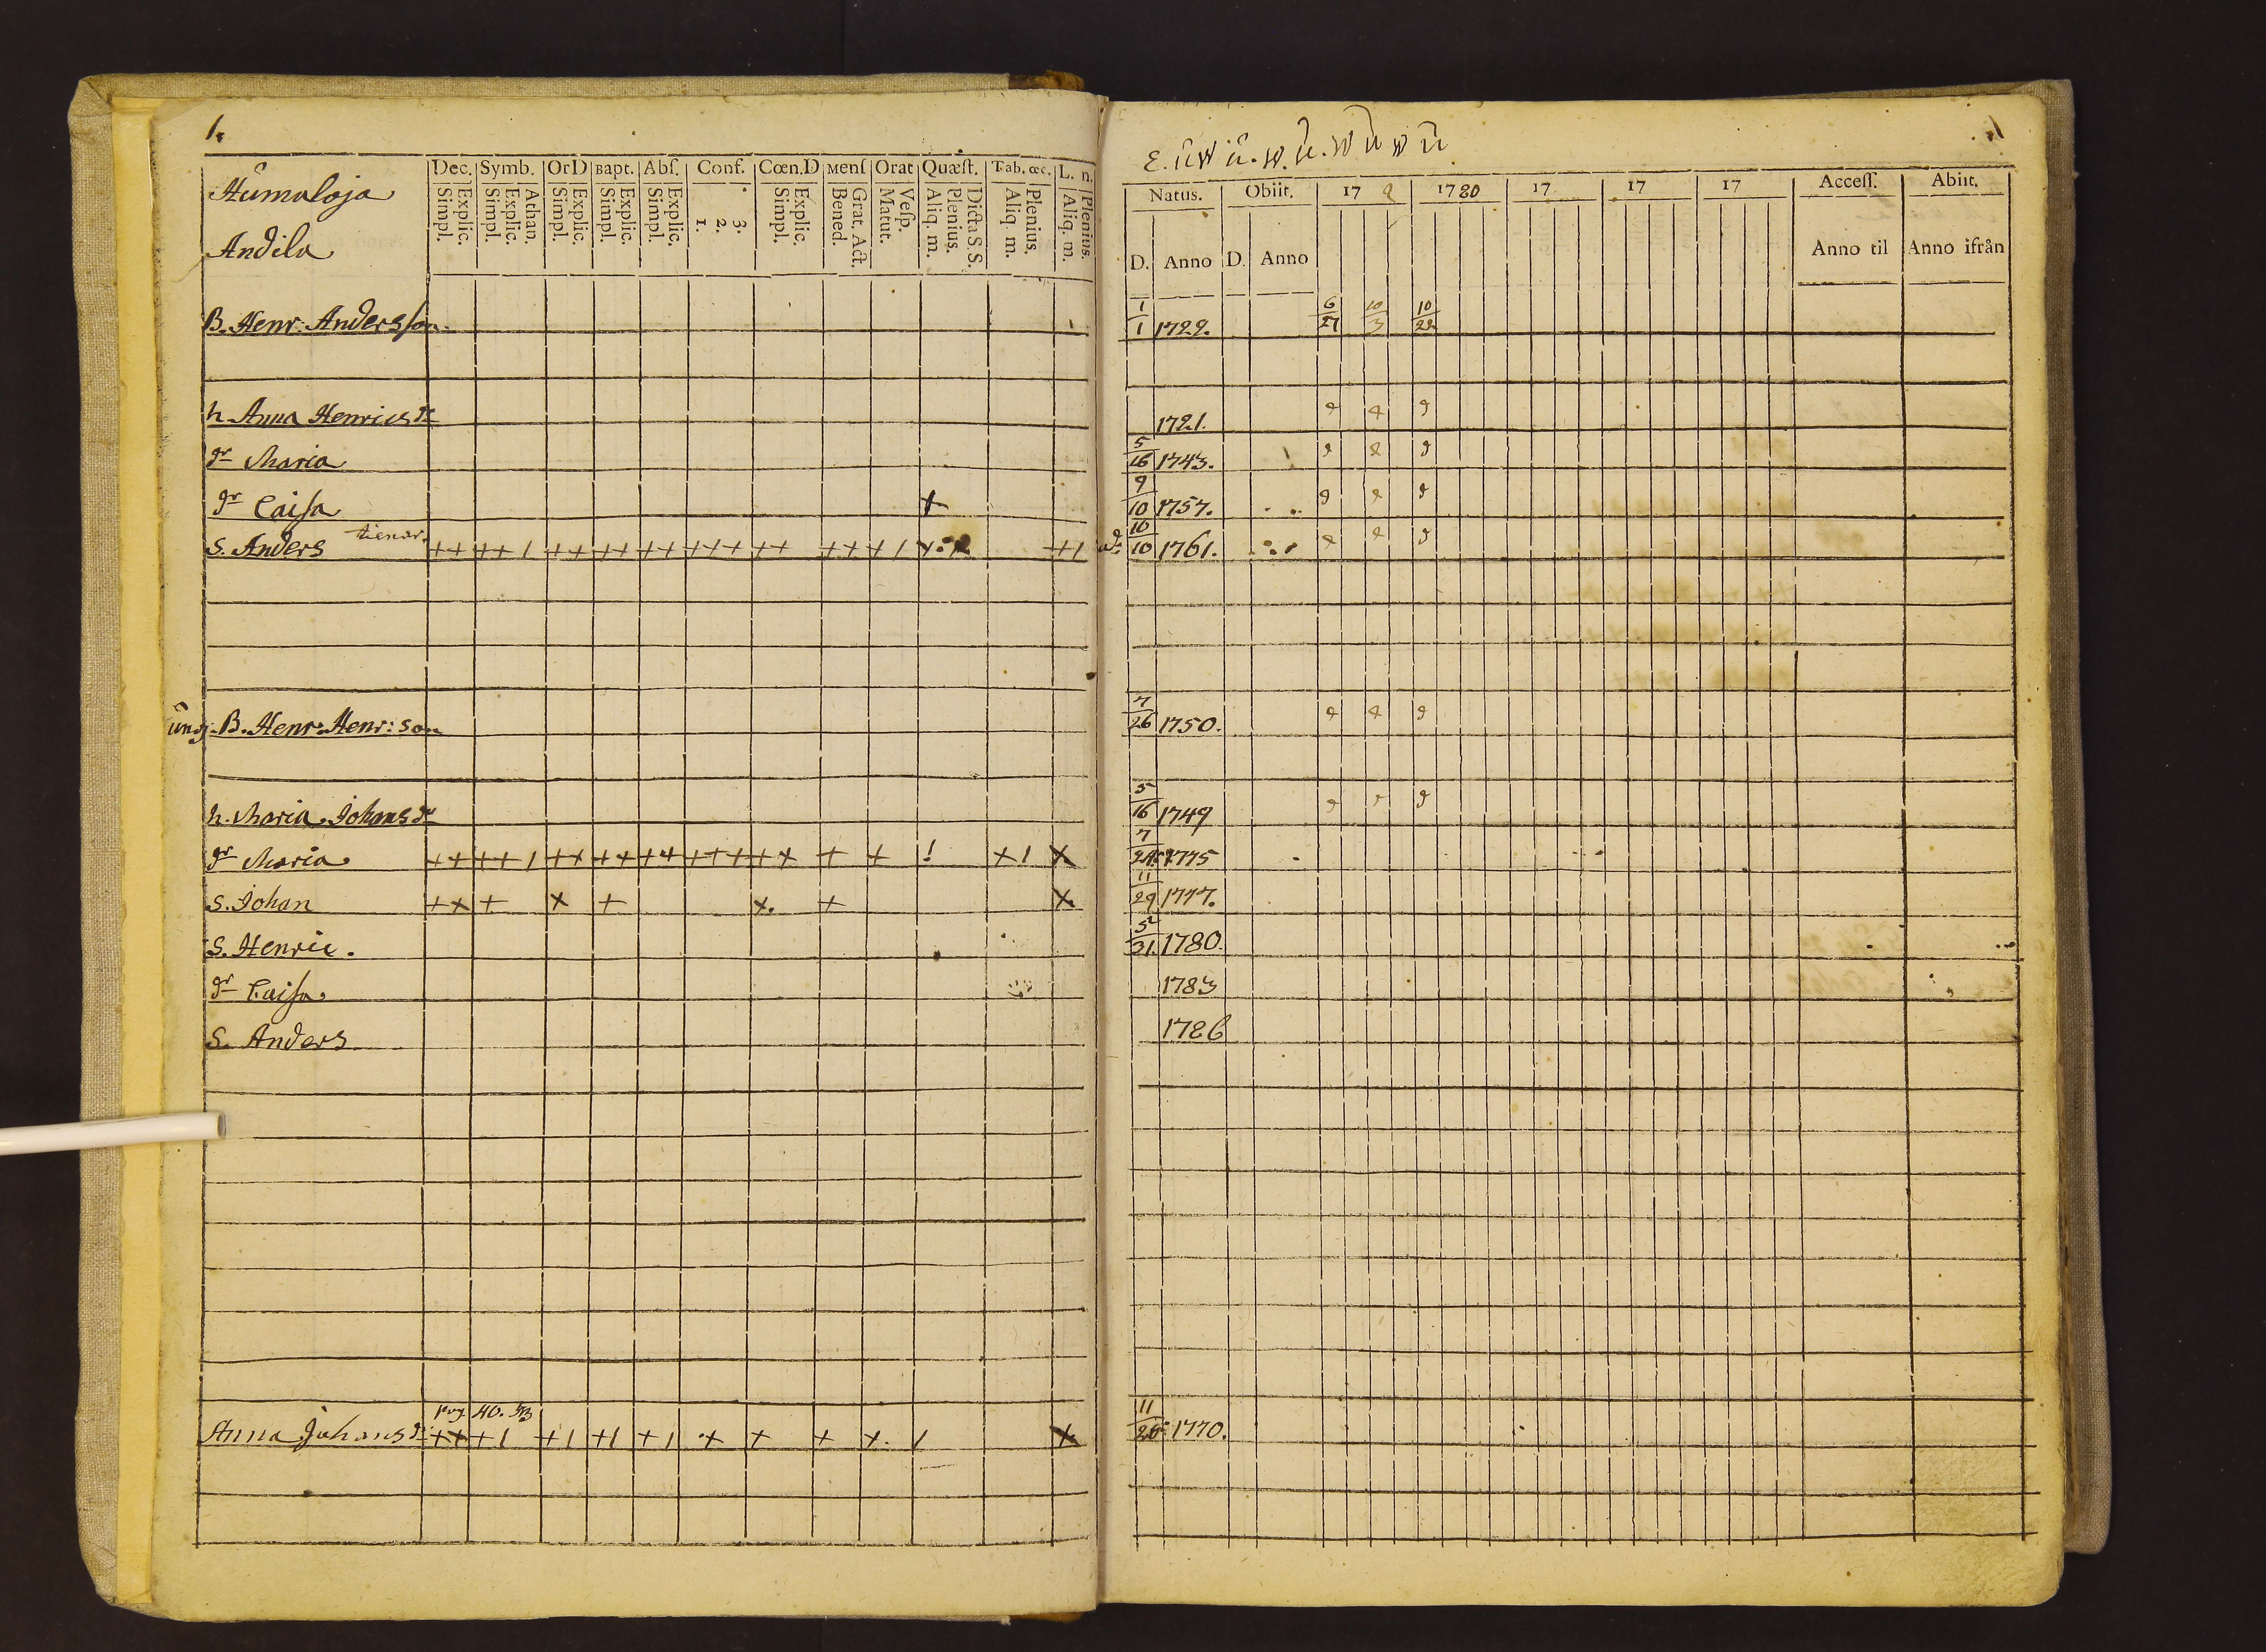 1.
Humaloja
Andila
Dec. Symb. OrD Bapt. Abſ. Conf. Cœn.D Menſ Orat Quæſt. Tab. œc. L. n.
Simpl. Explic. Simpl. Explic. Athan. Simpl. Explic. Simpl. Explic. Simpl. Explic. 1. 2. 3. Simpl. Explic. Bened. Grat. Act. Matut. Veſp. Aliq. m. Plenius. Dicta S. S. Aliq. m. Plenius. Aliq. m. Plenius.
B. Henr: Andersson
h. Anna Henricsdr
dr Maria
dr Caisa +
S. Anders tienar. ++ ++ 1 ++ ++ ++ +++ ++ ++ + 1 + +1
ung. B. Henr: Henr: son
h. Maria Johansdr
dr Maria ++ ++ 1 ++ ++ ++ +++ ++ + + ! + 1 +
S. Johan ++ + + + + + +
S. Henric.
dr Caisa.
S. Anders
pag. 40.
Anna Johansdr ++ + 1 + 1 + 1 + 1 + + + + 1 +
1
Natus. Obiit. 17 9 1780 17 17 17 Acceſſ. Abiit.
D. Anno D. Anno Anno til Anno ifrån
1/1 1722. 6/27 10/3 10/22
1721.
5/16 1743.
9/10 1757.
10/10 1761.
7/26 1750.
5/16 1749
7 1775
11/29 1777.
5/31. 1780.
1783
1786
11/26 1770.